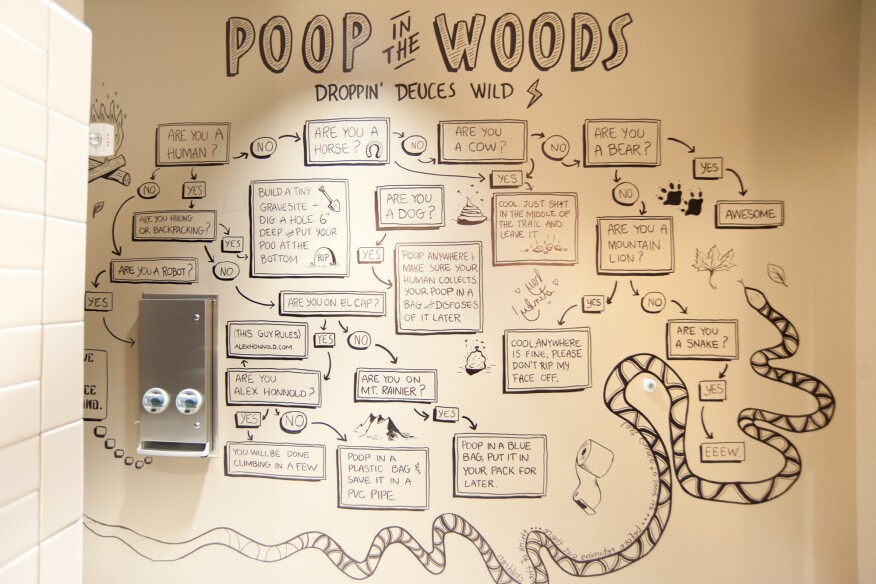 POOP IN THE WOODS
DROPPIN' DEUCES WILD
ARE YOU A
HUMAN?
NO
ARE YOU A
HORSE?
NO
ARE YOU
A COW?
NO
ARE YOU
A BEAR?
YES
AWESOME
NO
YES
YES
NO
ARE YOU HIKING
OR BACKPACKING?
YES
NO
BUILD A TINY
GRAVESITE -
DIG A HOLE 6"
DEEP AND PUT YOUR
POO AT THE
BOTTOM
RIP
ARE YOU
A DOG?
YES
COOL. JUST SH*T
IN THE MIDDLE OF
THE TRAIL AND
LEAVE IT
ARE YOU A
MOUNTAIN
LION?
YES
NO
ARE YOU A ROBOT?
YES
POOP ANYWHERE &
MAKE SURE YOUR
HUMAN COLLECTS
YOUR POOP IN A
BAG AND DISPOSES
OF IT LATER
ARE YOU ON EL CAP?
YES
NO
(THIS GUY RULES)
ALEXHONNOLD.COM
COOL, ANYWHERE
IS FINE, PLEASE
DON'T RIP MY
FACE OFF.
ARE YOU
A SNAKE?
YES
EEEW.
ARE YOU
ALEX HONNOLD?
YES
NO
ARE YOU ON
MT. RAINIER?
YES
YOU WILL BE DONE
CLIMBING IN A FEW.
POOP IN A
PLASTIC BAG &
SAVE IT IN A
PVC PIPE.
POOP IN A BLUE
BAG, PUT IT IN
YOUR PACK FOR
LATER.